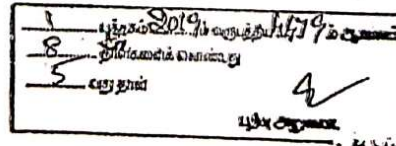 1 புத்தகம் 2019ம் வருடத்திய 1479ம் ஆவணம்
8 தாள்களைக் கொண்டது
5 வது தாள்